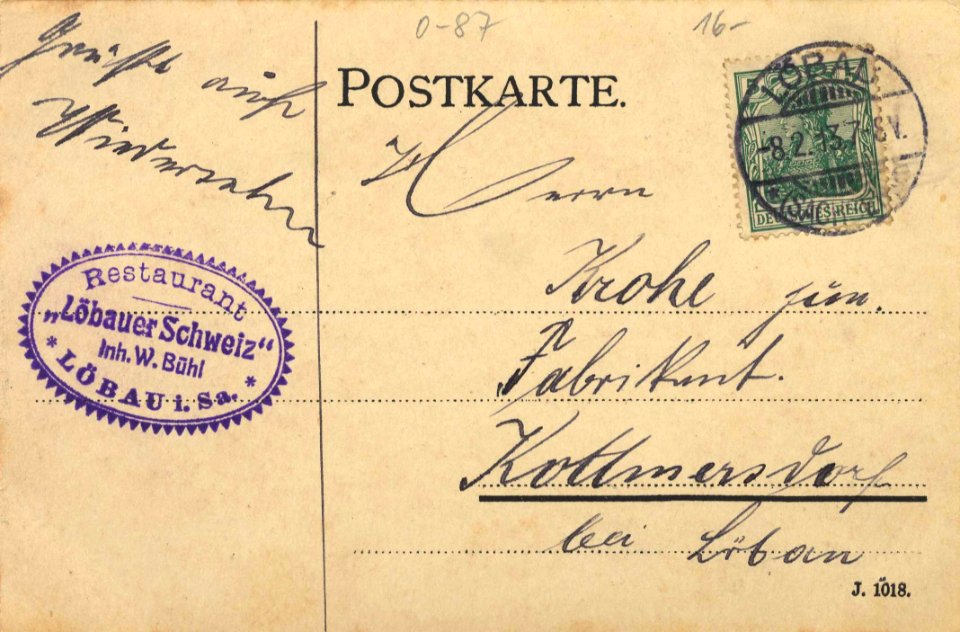 0-87
16-
Grüße auf
Wiedersehn
POSTKARTE.
LÖBAU
-8.2.13.7-8V.
DEUTSCHES REICH
Herrn
Krohe jun.
Fabrikant.
Kottmersdorf
bei Löbau
Restaurant
„Löbauer Schweiz“
Inh. W. Bühl
* LÖBAU i. Sa. *
J. 1018.